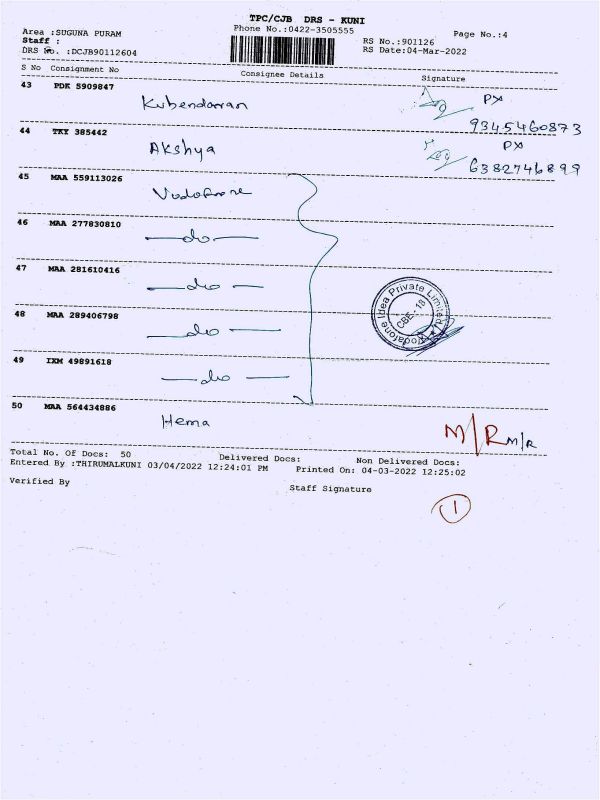 TPC/CJB DRS - KUNI
Phone No.:0422-3505555
Area :SUGUNA PURAM
Page No.:4
Staff :
RS No.:901126
DRS No. :DCJB90112604
RS Date:04-Mar-2022
S No Consignment No Consignee Details Signature
43 PDK 5909847 Kubendarran PX
9345460873
44 TKY 385442 Akshya PX
6382746899
45 MAA 559113026 Vodafone
46 MAA 277830810 —do—
47 MAA 281610416 —do—
48 MAA 289406798 —do—
Vodafone Idea Private Limited
CBE-18
49 IXM 49891618 —do—
50 MAA 564434886 Hema M/R M/R
Total No. Of Docs: 50 Delivered Docs: Non Delivered Docs:
Entered By :THIRUMALKUNI 03/04/2022 12:24:01 PM Printed On: 04-03-2022 12:25:02
Verified By Staff Signature
1